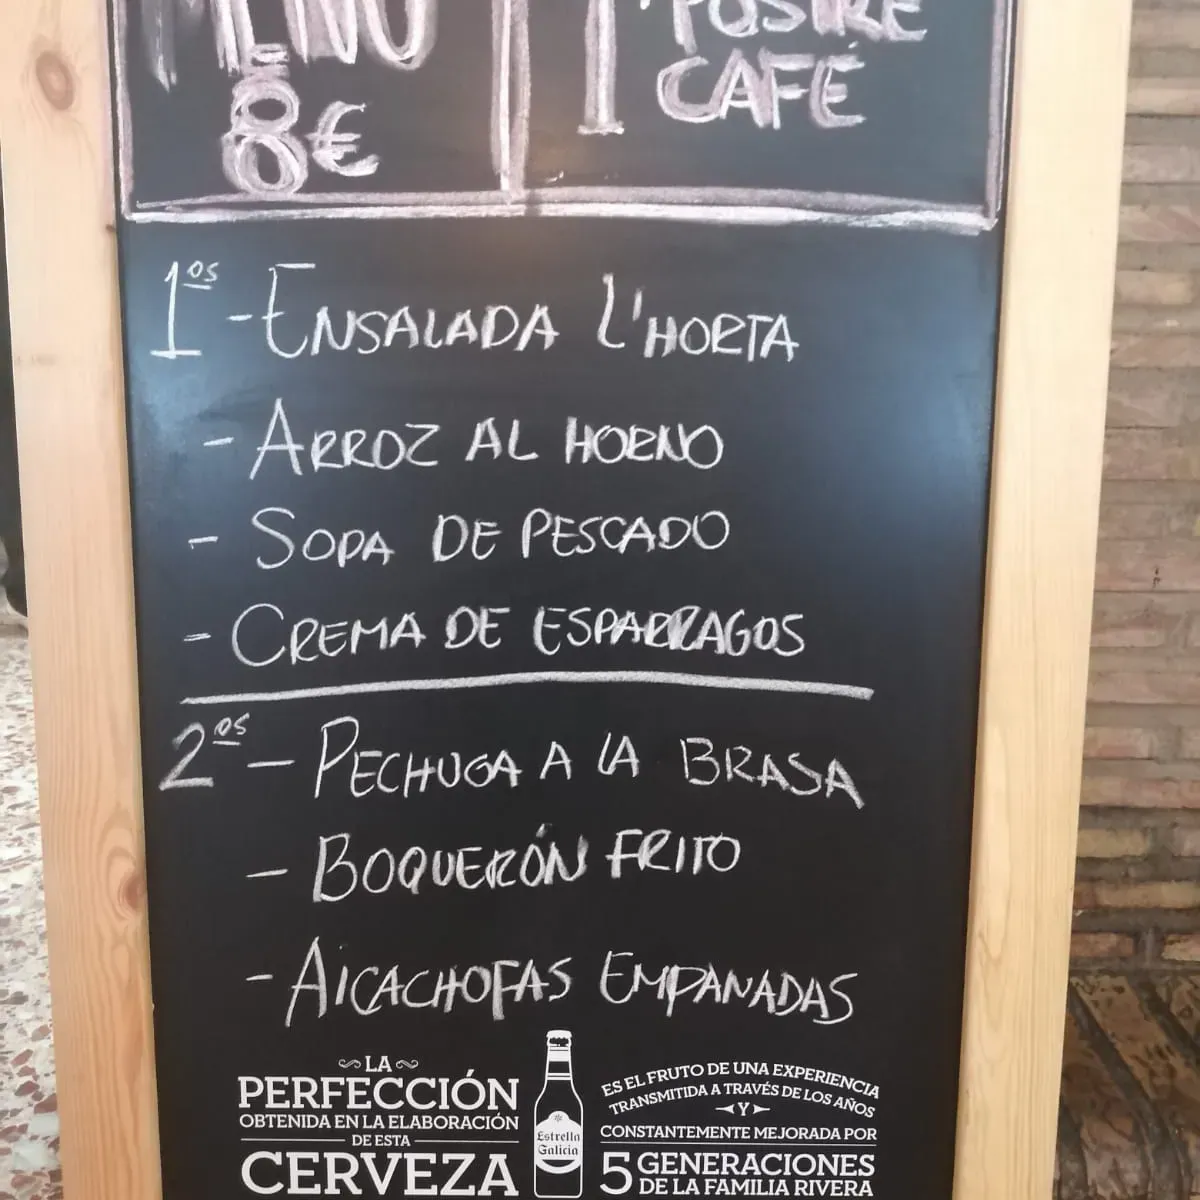 MENÚ
8€
1 POSTRE
CAFÉ
1os - ENSALADA L'HORTA
- ARROZ AL HORNO
- SOPA DE PESCADO
- CREMA DE ESPARRAGOS
2os - PECHUGA A LA BRASA
- BOQUERÓN FRITO
- AlCACHOFAS EMPANADAS
LA
PERFECCIÓN
OBTENIDA EN LA ELABORACIÓN
DE ESTA
CERVEZA
Estrella
Galicia
ES EL FRUTO DE UNA EXPERIENCIA
TRANSMITIDA A TRAVÉS DE LOS AÑOS
Y
CONSTANTEMENTE MEJORADA POR
5 GENERACIONES
DE LA FAMILIA RIVERA